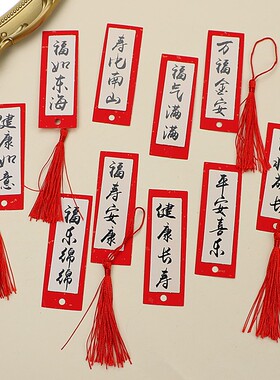 福如东海
寿比南山
福气满满
万福金安
健康如意
福乐绵绵
福寿安康
健康长寿
平安喜乐